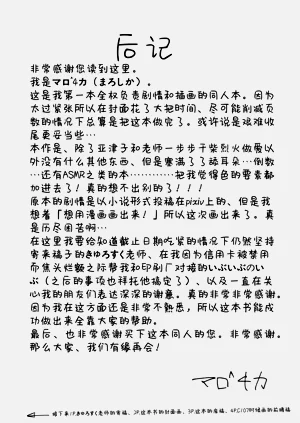 后记
非常感谢您读到这里。
我是マロ゛チカ（まろしか）。
这是我第一本全权负责剧情和插画的同人本。因为
太过紧张所以在封面花了大把时间、尽可能削减页
数的情况下总算是把这本做完了。或许说是艰难收
尾更妥当些…
本作是、除了亚津子和老师一步步干柴烈火做爱以
外没有什么其他东西、但是塞满了了舔耳朵…倒数
…还有ASMR之类的本…………把我觉得色的要素都
加进去了！真的想不出别的了！！！
原本的剧情是以小说形式投稿在pixiv上的、但是我
想着「想用漫画画出来！」所以这次画出来了。真
是历尽困苦啊…
在这里我要给知道截止日期吃紧的情况下仍然坚持
寄来稿子的きゆろすく老师、在我因为信用卡被禁用
而焦头烂额之际帮我和印刷厂对接的いぶいぶのい
ぶ（之后的事项也拜托他搞定了）、以及一直在关
心我的朋友们表达深深的谢意。真的非常非常感谢。
因为我在这方面还是非常不熟悉，所以这本书能成
功做出来全靠大家的帮助。
最后、也非常感谢买下这本同人的您。非常感谢。
那么大家、我们有缘再会！
マロ゛チカ
接下来1P.きゆろすく老师的寄稿、2P.这本书的封面画、3P.这本书的底稿、4P.C107时绘画的花嫁稿